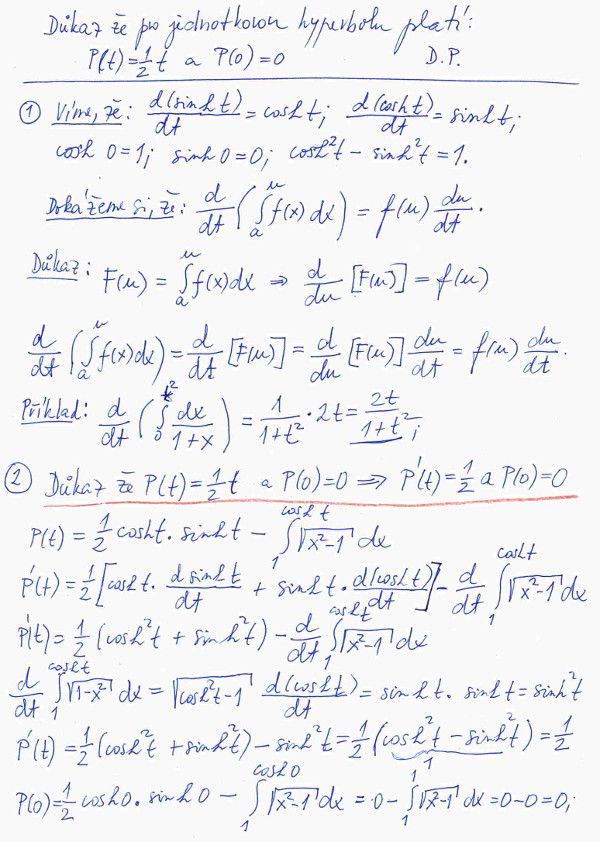 Důkaz že pro jednotkovou hyperbolu platí:
P(t)=½t a P(0)=0 D.P.
① Víme, že: d(sinh t)/dt = cosh t; d(cosh t)/dt = sinh t;
cosh 0=1; sinh 0=0; cosh²t − sinh²t = 1.
Dokážeme si, že: d/dt (∫ₐᵘ f(x) dx) = f(u) du/dt.
Důkaz: F(u) = ∫ₐᵘ f(x)dx ⇒ d/du [F(u)] = f(u)
d/dt (∫ₐᵘ f(x)dx) = d/dt [F(u)] = d/du [F(u)] du/dt = f(u) du/dt.
Příklad: d/dt (∫₀^(t²) dx/(1+x)) = 1/(1+t²) · 2t = 2t/(1+t²);
② Důkaz že P(t)=½t a P(0)=0 ⇒ P'(t)=½ a P(0)=0
P(t) = ½ cosh t · sinh t − ∫₁^(cosh t) √(x²−1) dx
P'(t) = ½[cosh t · d sinh t/dt + sinh t · d(cosh t)/dt] − d/dt ∫₁^(cosh t) √(x²−1) dx
P'(t) = ½ (cosh²t + sinh²t) − d/dt ∫₁^(cosh t) √(x²−1) dx
d/dt ∫₁^(cosh t) √(1−x²) dx = √(cosh²t−1) d(cosh t)/dt = sinh t · sinh t = sinh²t
P'(t) = ½(cosh²t + sinh²t) − sinh²t = ½(cosh²t − sinh²t) = ½
1
P(0)=½ cosh 0 · sinh 0 − ∫₁^(cosh 0) √(x²−1) dx = 0 − ∫₁¹ √(x²−1) dx = 0−0 = 0;